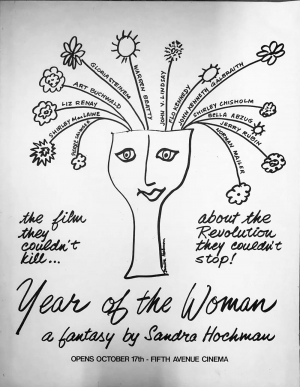 GLORIA STEINEM
WARREN BEATTY
JOHN V. LINDSAY
FLO KENNEDY
JOHN KENNETH GALBRAITH
ART BUCHWALD
SHIRLEY CHISHOLM
LIZ RENAY
BELLA ABZUG
SHIRLEY MacLAINE
JERRY RUBIN
NORMAN MAILER
the film
they
couldn't
kill...
about the
Revolution
they couldn't
stop!
Year of the Woman
a fantasy by Sandra Hochman
OPENS OCTOBER 17th - FIFTH AVENUE CINEMA